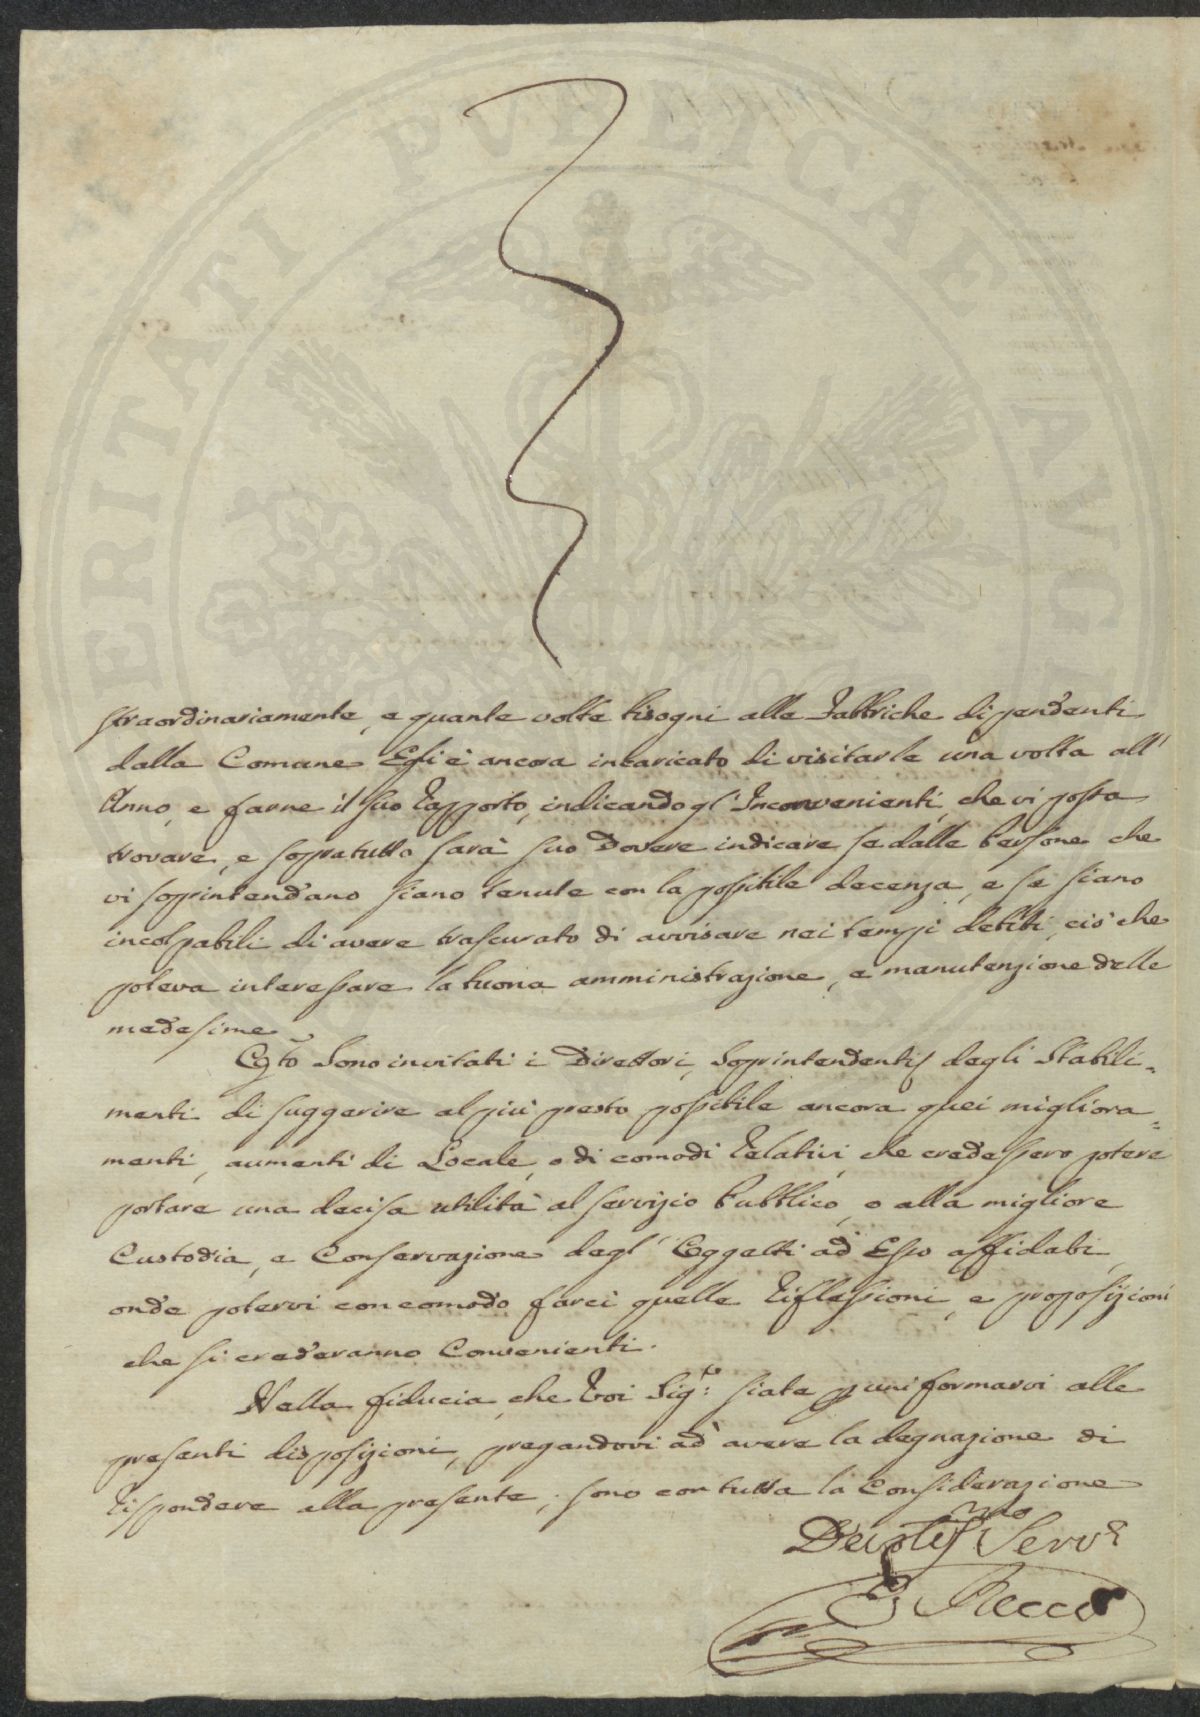 straordinariamente, e quante volte bisogni alle Fabbriche dipendenti
dalla Comune. Egli è ancora incaricato di visitarle una volta all'
Anno, e farne il suo Rapporto, indicando gl'Inconvenienti, che vi possa
trovare, e sopratutto sarà suo Dovere indicare se dalle Persone che
vi soprintendano siano tenute con la possibile decenza, e se siano
incolpabili di avere trascurato di avvisare nei tempi debiti, ciò che
poteva interessare la buona amministrazione, e manutenzione delle
medesime.
Sono invitati i Direttori, Soprintendenti degli Stabili=
menti di suggerire al più presto possibile ancora quei migliora=
menti, aumenti di Locale, o di comodi Relativi, che credessero potere
portare una decisa utilità al servizio Pubblico, o alla migliore
Custodia, e Conservazione degl'Oggetti ad Esso affidati,
onde potervi con comodo farci quelle Riflessioni, e proposizioni
che si crederanno Convenienti.
Nella fiducia, che Voi Sig.re siate p uniformarvi alle
presenti disposizioni, pregandovi ad avere la degnazione di
Rispondere alla presente, sono con tutta la Considerazione
Servr
G Recco
VERITATI PVBLICAE AVGE